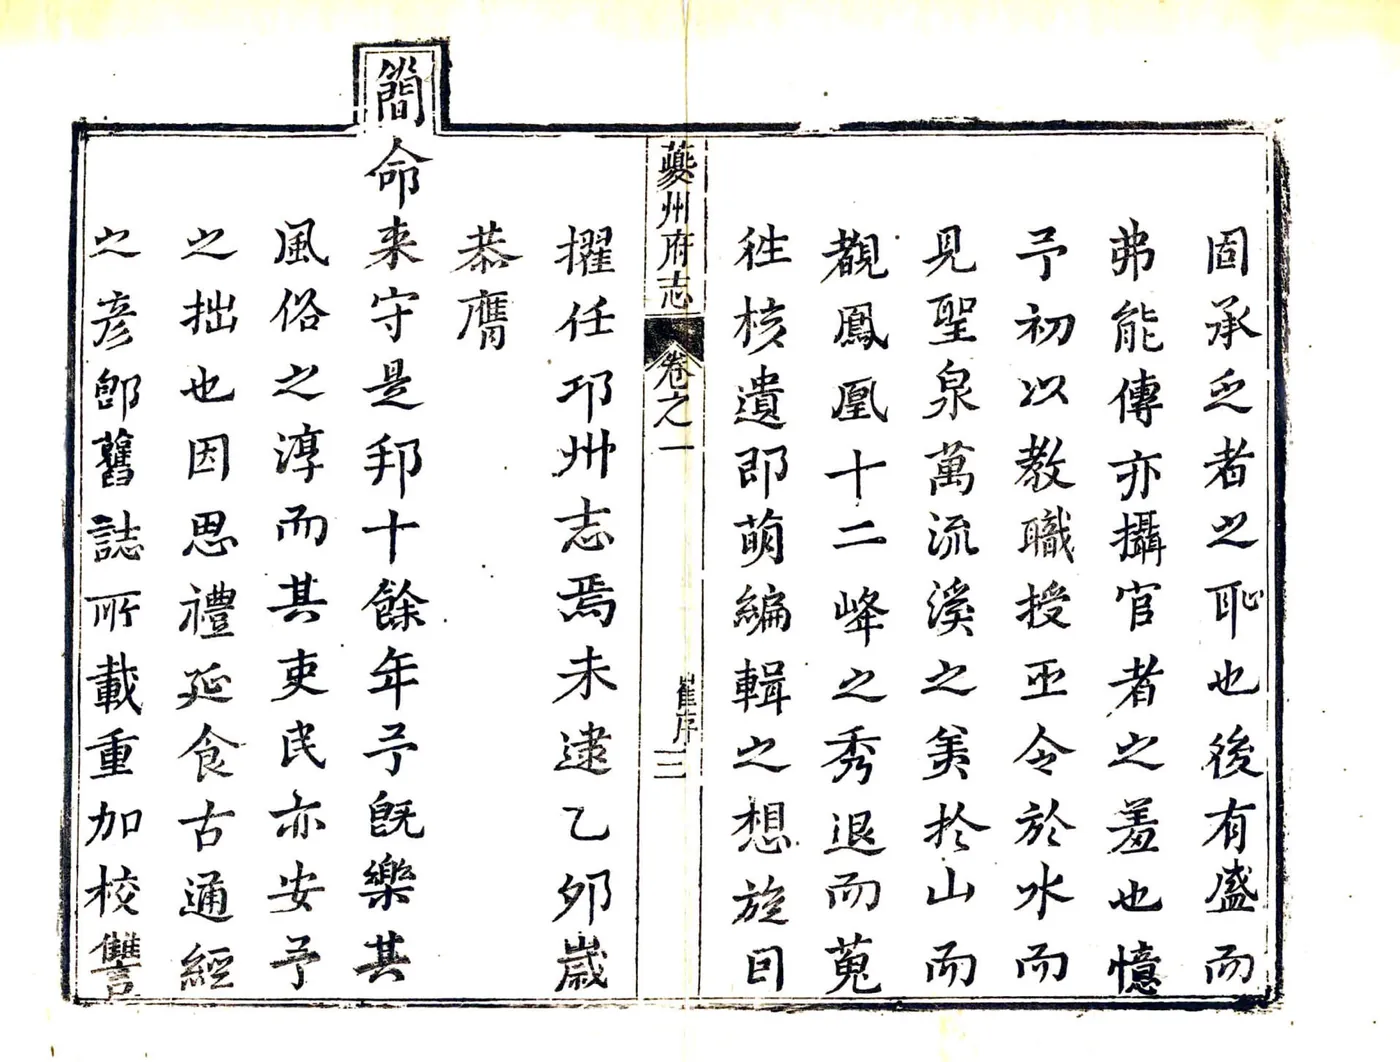 固承乏者之耻也後有盛而
弗能傳亦攝官者之羞也憶
予初以教職授巫令於水而
見聖泉萬流溪之美於山而
觀鳳凰十二峰之秀退而蒐
往核遺即萌編輯之想旋因
夔州府志
卷之一
崔序
三
擢任邛州志焉未逮乙夘歲
恭膺
簡命来守是邦十餘年予既樂其
風俗之淳而其吏民亦安予
之拙也因思禮延食古通經
之彥卽舊誌所載重加校讐